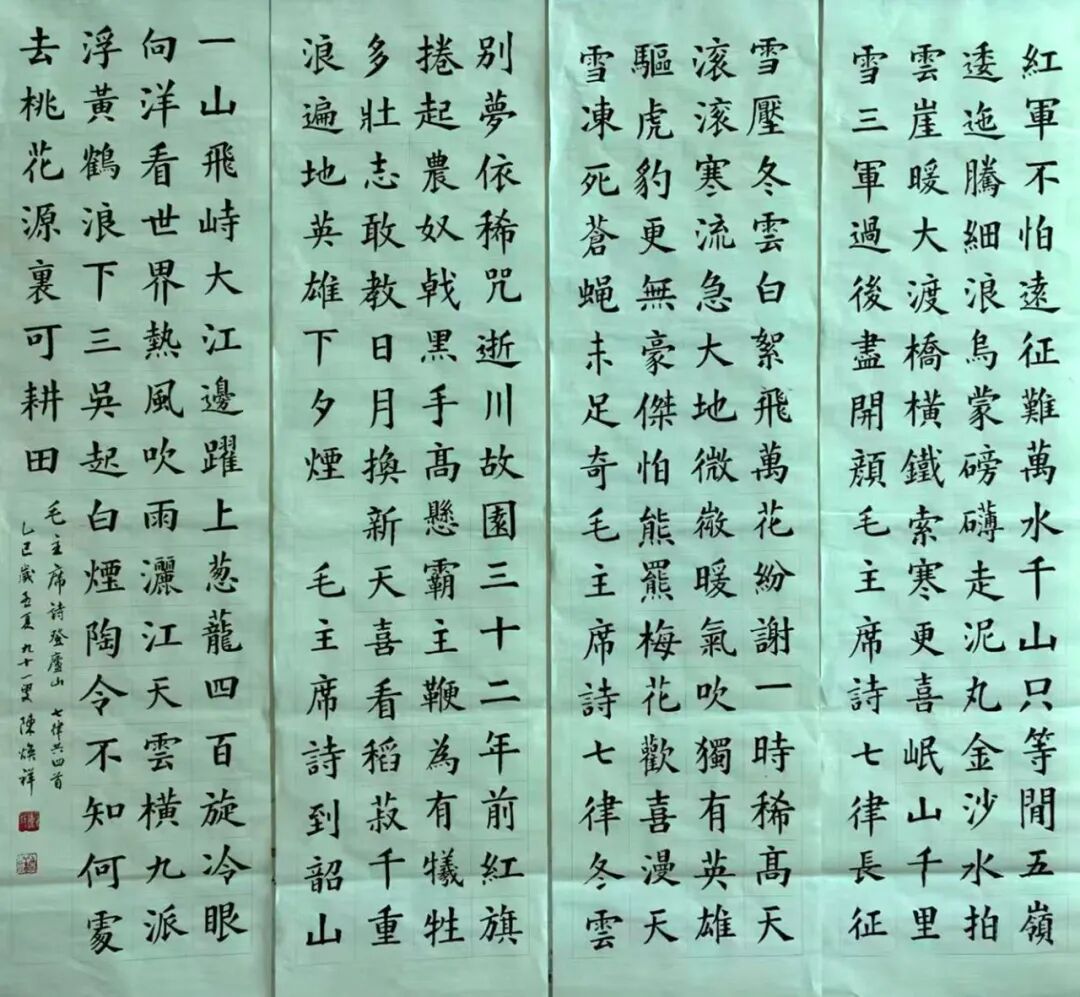 紅軍不怕遠征難萬水千山只等閒五嶺
逶迤騰細浪烏蒙磅礴走泥丸金沙水拍
雲崖暖大渡橋橫鐵索寒更喜岷山千里
雪三軍過後盡開顏毛主席詩七律長征
雪壓冬雲白絮飛萬花紛謝一時稀高天
滚滚寒流急大地微微暖氣吹獨有英雄
驅虎豹更無豪傑怕熊羆梅花歡喜漫天
雪凍死蒼蠅未足奇毛主席詩七律冬雲
別夢依稀咒逝川故園三十二年前紅旗
捲起農奴戟黑手高懸霸主鞭為有犧牲
多壯志敢教日月換新天喜看稻菽千重
浪遍地英雄下夕煙 毛主席詩到韶山
一山飛峙大江邊躍上葱蘢四百旋冷眼
向洋看世界熱風吹雨灑江天雲橫九派
浮黃鶴浪下三吳起白煙陶令不知何處
去桃花源裏可耕田
毛主席詩登廬山 七律共四首
乙巳歲孟夏九十一叟陳煥祥